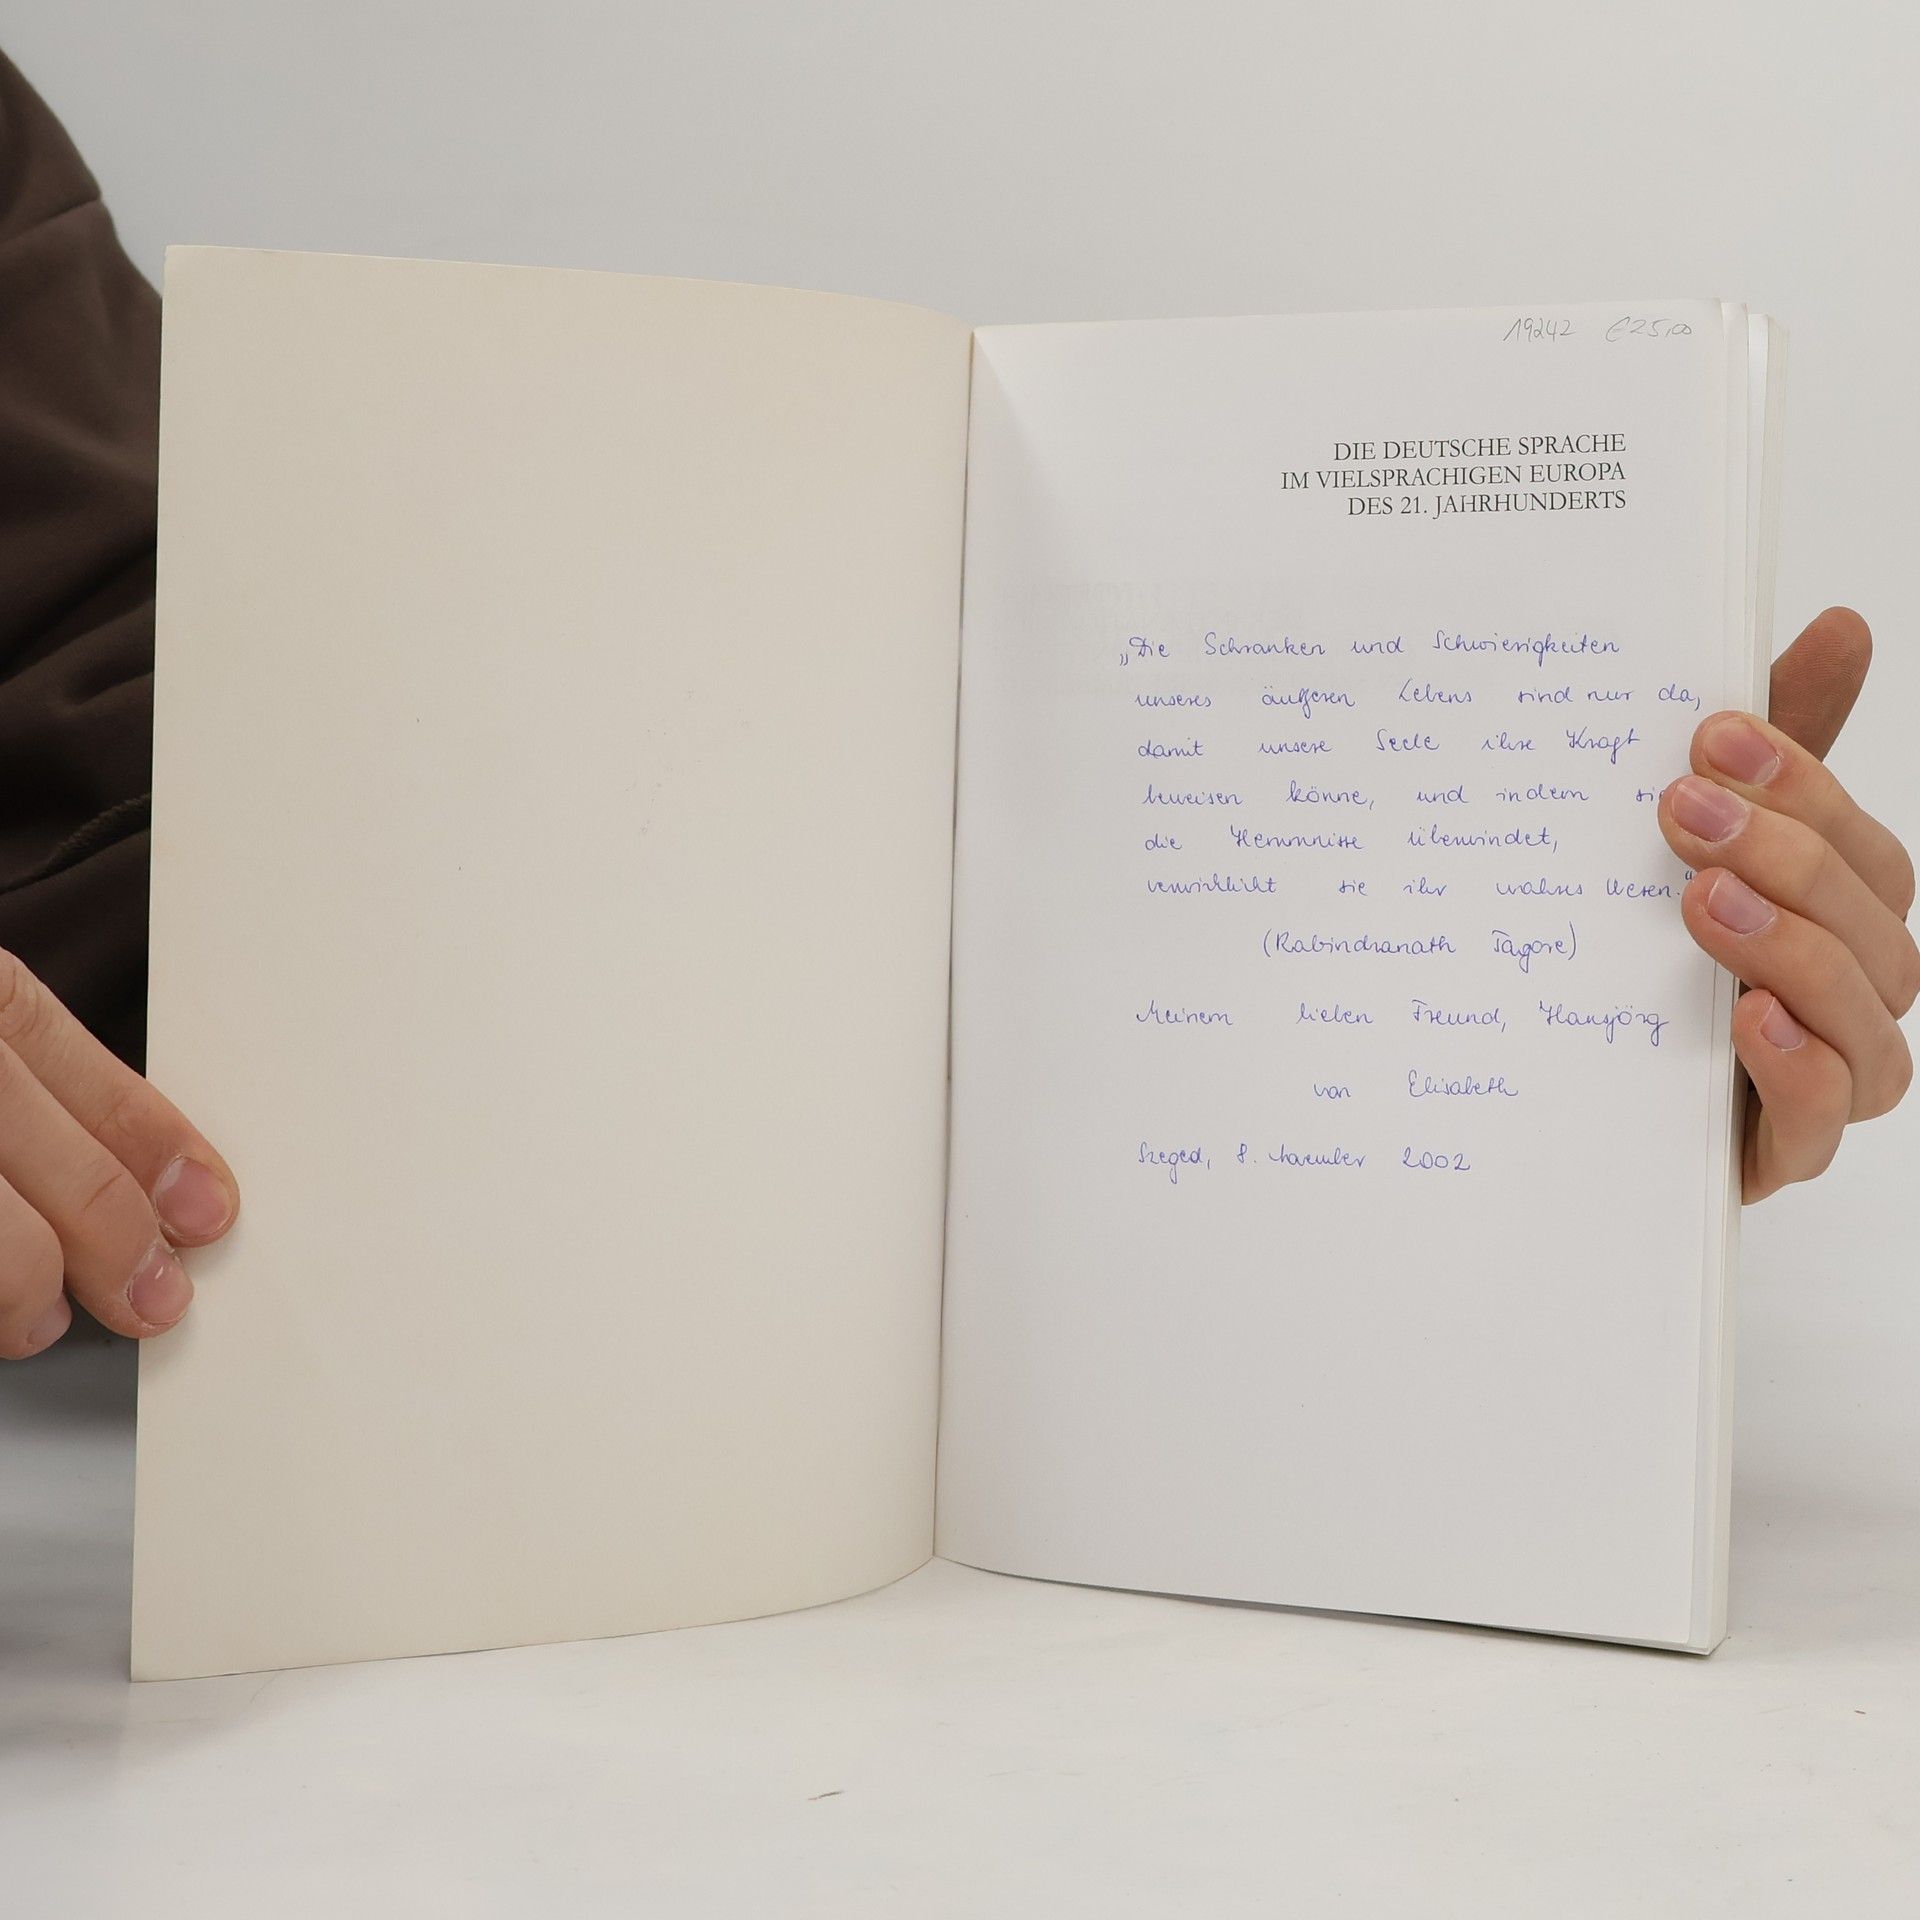 19242 €25,00
DIE DEUTSCHE SPRACHE
IM VIELSPRACHIGEN EUROPA
DES 21. JAHRHUNDERTS
„Die Schranken und Schwierigkeiten
unseres äußeren Lebens sind nur da,
damit unsere Seele ihre Kraft
beweisen könne, und indem sie
die Hemmnisse überwindet,
verwirklicht sie ihr wahres Wesen.“
(Rabindranath Tagore)
Meinem lieben Freund, Hansjörg
von Elisabeth
Szeged, 8. November 2002